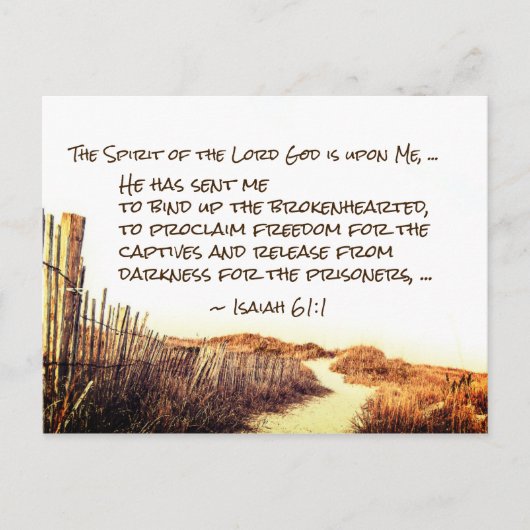 The Spirit of the Lord God is upon Me, ...
He has sent me
to bind up the brokenhearted,
to proclaim freedom for the
captives and release from
darkness for the prisoners, ...
~ Isaiah 61:1